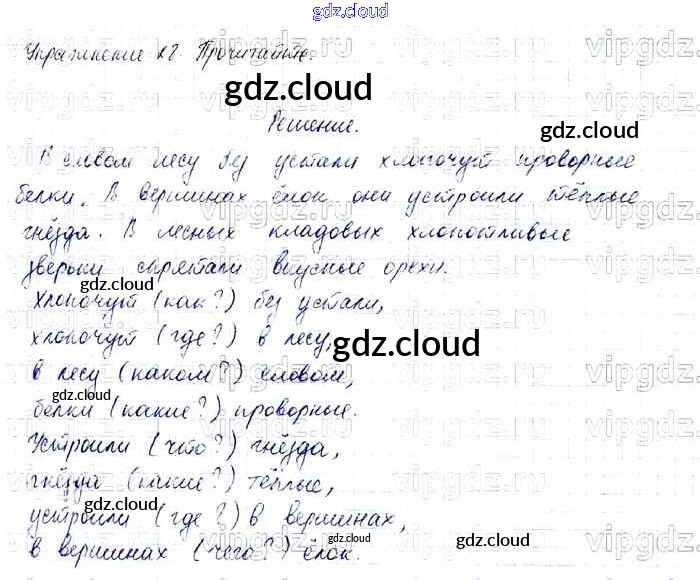 gdz.cloud
Упражнение 28. Прочитайте.
gdz.cloud
Решение.
gdz.cloud
В еловом лесу без устали хлопочут проворные
белки. В вершинах ёлок они устроили тёплые
gdz.cloud
гнёзда. В лесных кладовых хлопотливые
зверьки спрятали вкусные орехи.
gdz.cloud
Хлопочут (как?) без устали,
gdz.cloud
хлопочут (где?) в лесу,
gdz.cloud
в лесу (каком?) еловом,
gdz.cloud
белки (какие?) проворные.
Устроили (что?) гнёзда,
гнёзда (какие?) тёплые,
gdz.cloud
устроили (где?) в вершинах,
gdz.cloud
в вершинах (чего?) ёлок.
gdz.cloud